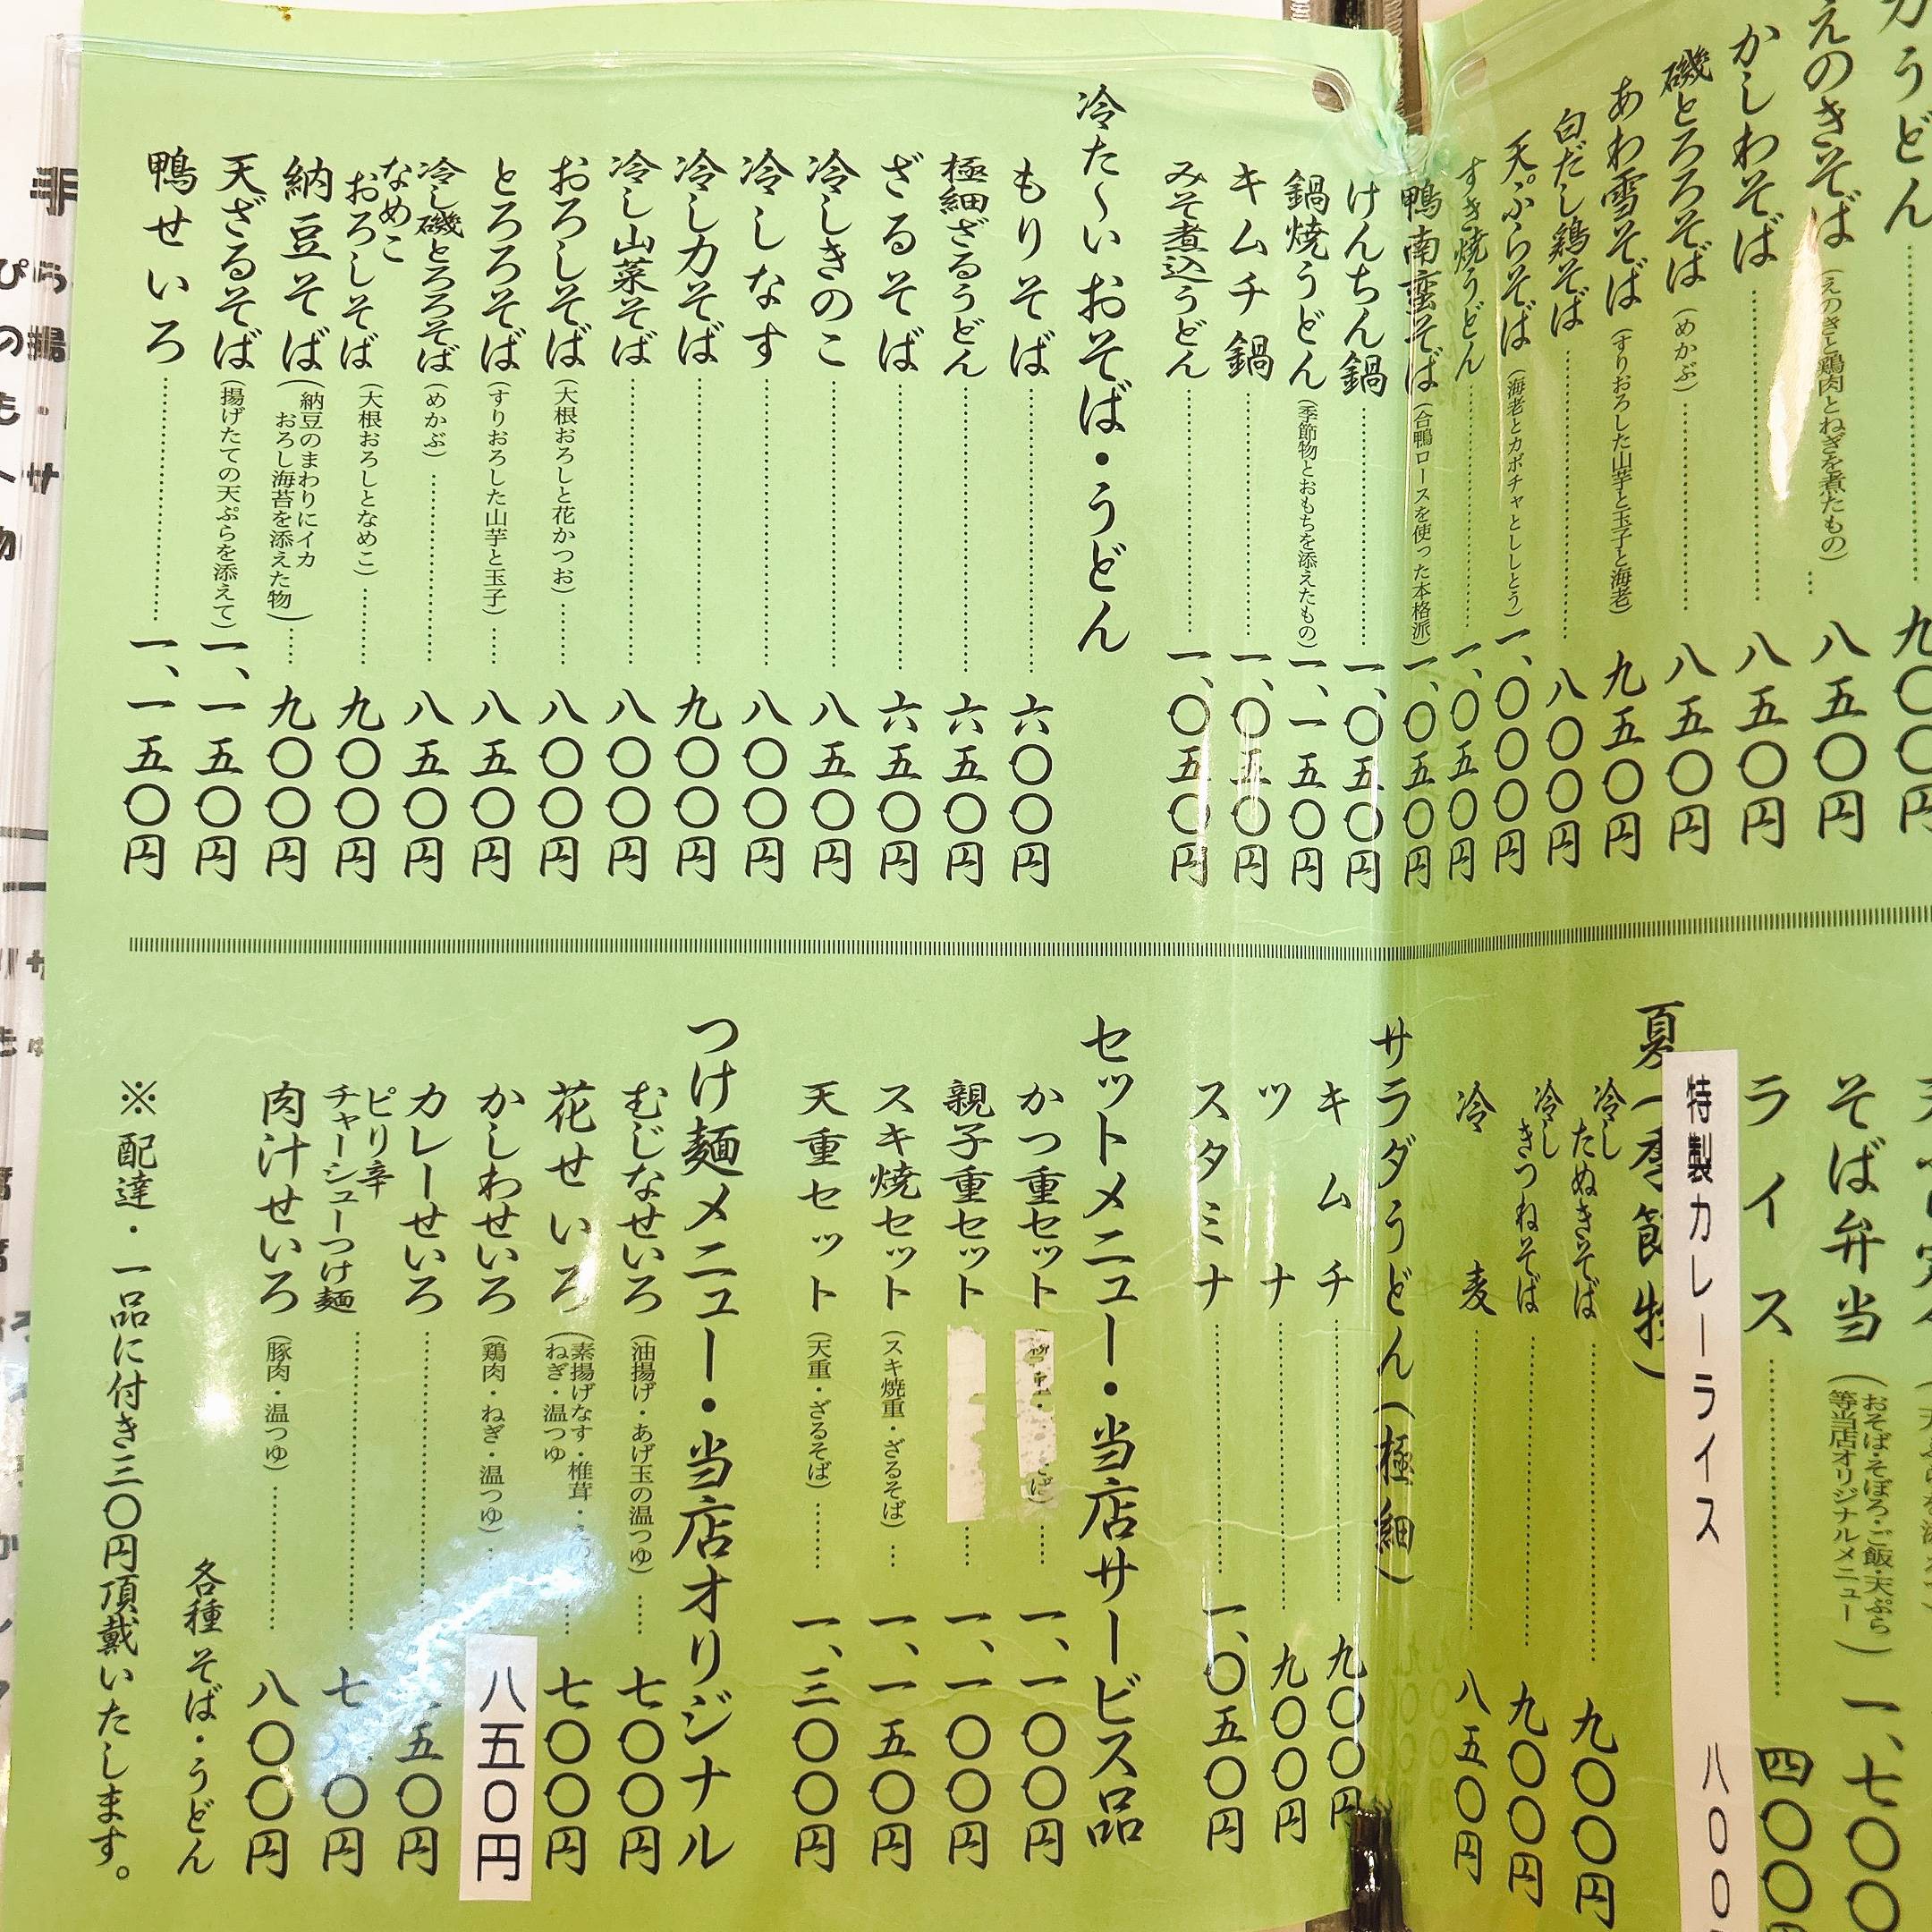 うどん 九〇〇円
えのきそば (えのきと鶏肉とねぎを煮たもの) 八五〇円
かしわそば 八五〇円
磯とろろそば (めかぶ) 八五〇円
あわ雪そば (すりおろした山芋と玉子と海老) 九五〇円
白だし鶏そば 八〇〇円
天ぷらそば (海老とカボチャとししとう) 一、〇〇〇円
すき焼うどん 一、〇五〇円
鴨南蛮そば (合鴨ロースを使った本格派) 一、〇五〇円
けんちん鍋 一、〇五〇円
鍋焼うどん (季節物とおもちを添えたもの) 一、一五〇円
キムチ鍋 一、〇五〇円
みそ煮込うどん 一、〇五〇円
冷た〜いおそば・うどん
もりそば 六〇〇円
極細ざるうどん 六五〇円
ざるそば 六五〇円
冷しきのこ 八五〇円
冷しなす 八〇〇円
冷し力そば 九〇〇円
冷し山菜そば 八〇〇円
おろしそば (大根おろしと花かつお) 八〇〇円
とろろそば (すりおろした山芋と玉子) 八五〇円
冷し磯とろろそば (めかぶ) 八五〇円
なめこおろしそば (大根おろしとなめこ) 九〇〇円
納豆そば (納豆のまわりにイカおろし海苔を添えた物) 九〇〇円
天ざるそば (揚げたての天ぷらを添えて) 一、一五〇円
鴨せいろ 一、一五〇円
そば弁当 (おそば・そぼろ・ご飯・天ぷら等当店オリジナルメニュー) 一、七〇〇
ライス 四〇〇円
特製カレーライス 八〇〇
夏(季節物)
冷したぬきそば 九〇〇円
冷しきつねそば 九〇〇円
冷麦 八五〇円
サラダうどん(極細)
キムチ 九〇〇円
ツナ 九〇〇円
スタミナ 一、〇五〇円
セットメニュー・当店サービス品
かつ重セット 一、一〇〇円
親子重セット 一、一〇〇円
スキ焼セット (スキ焼重・ざるそば) 一、一五〇円
天重セット (天重・ざるそば) 一、三〇〇円
つけ麺メニュー・当店オリジナル
むじなせいろ (油揚げ・あげ玉の温つゆ) 七〇〇円
花せいろ (素揚げなす・椎茸・ ねぎ・温つゆ 七〇〇円
かしわせいろ (鶏肉・ねぎ・温つゆ) 八五〇円
カレーせいろ 五〇円
ピリ辛チャーシューつけ麺 七 〇円
肉汁せいろ (豚肉・温つゆ) 八〇〇円
各種 そば・うどん
※ 配達・一品に付き三〇円頂戴いたします。